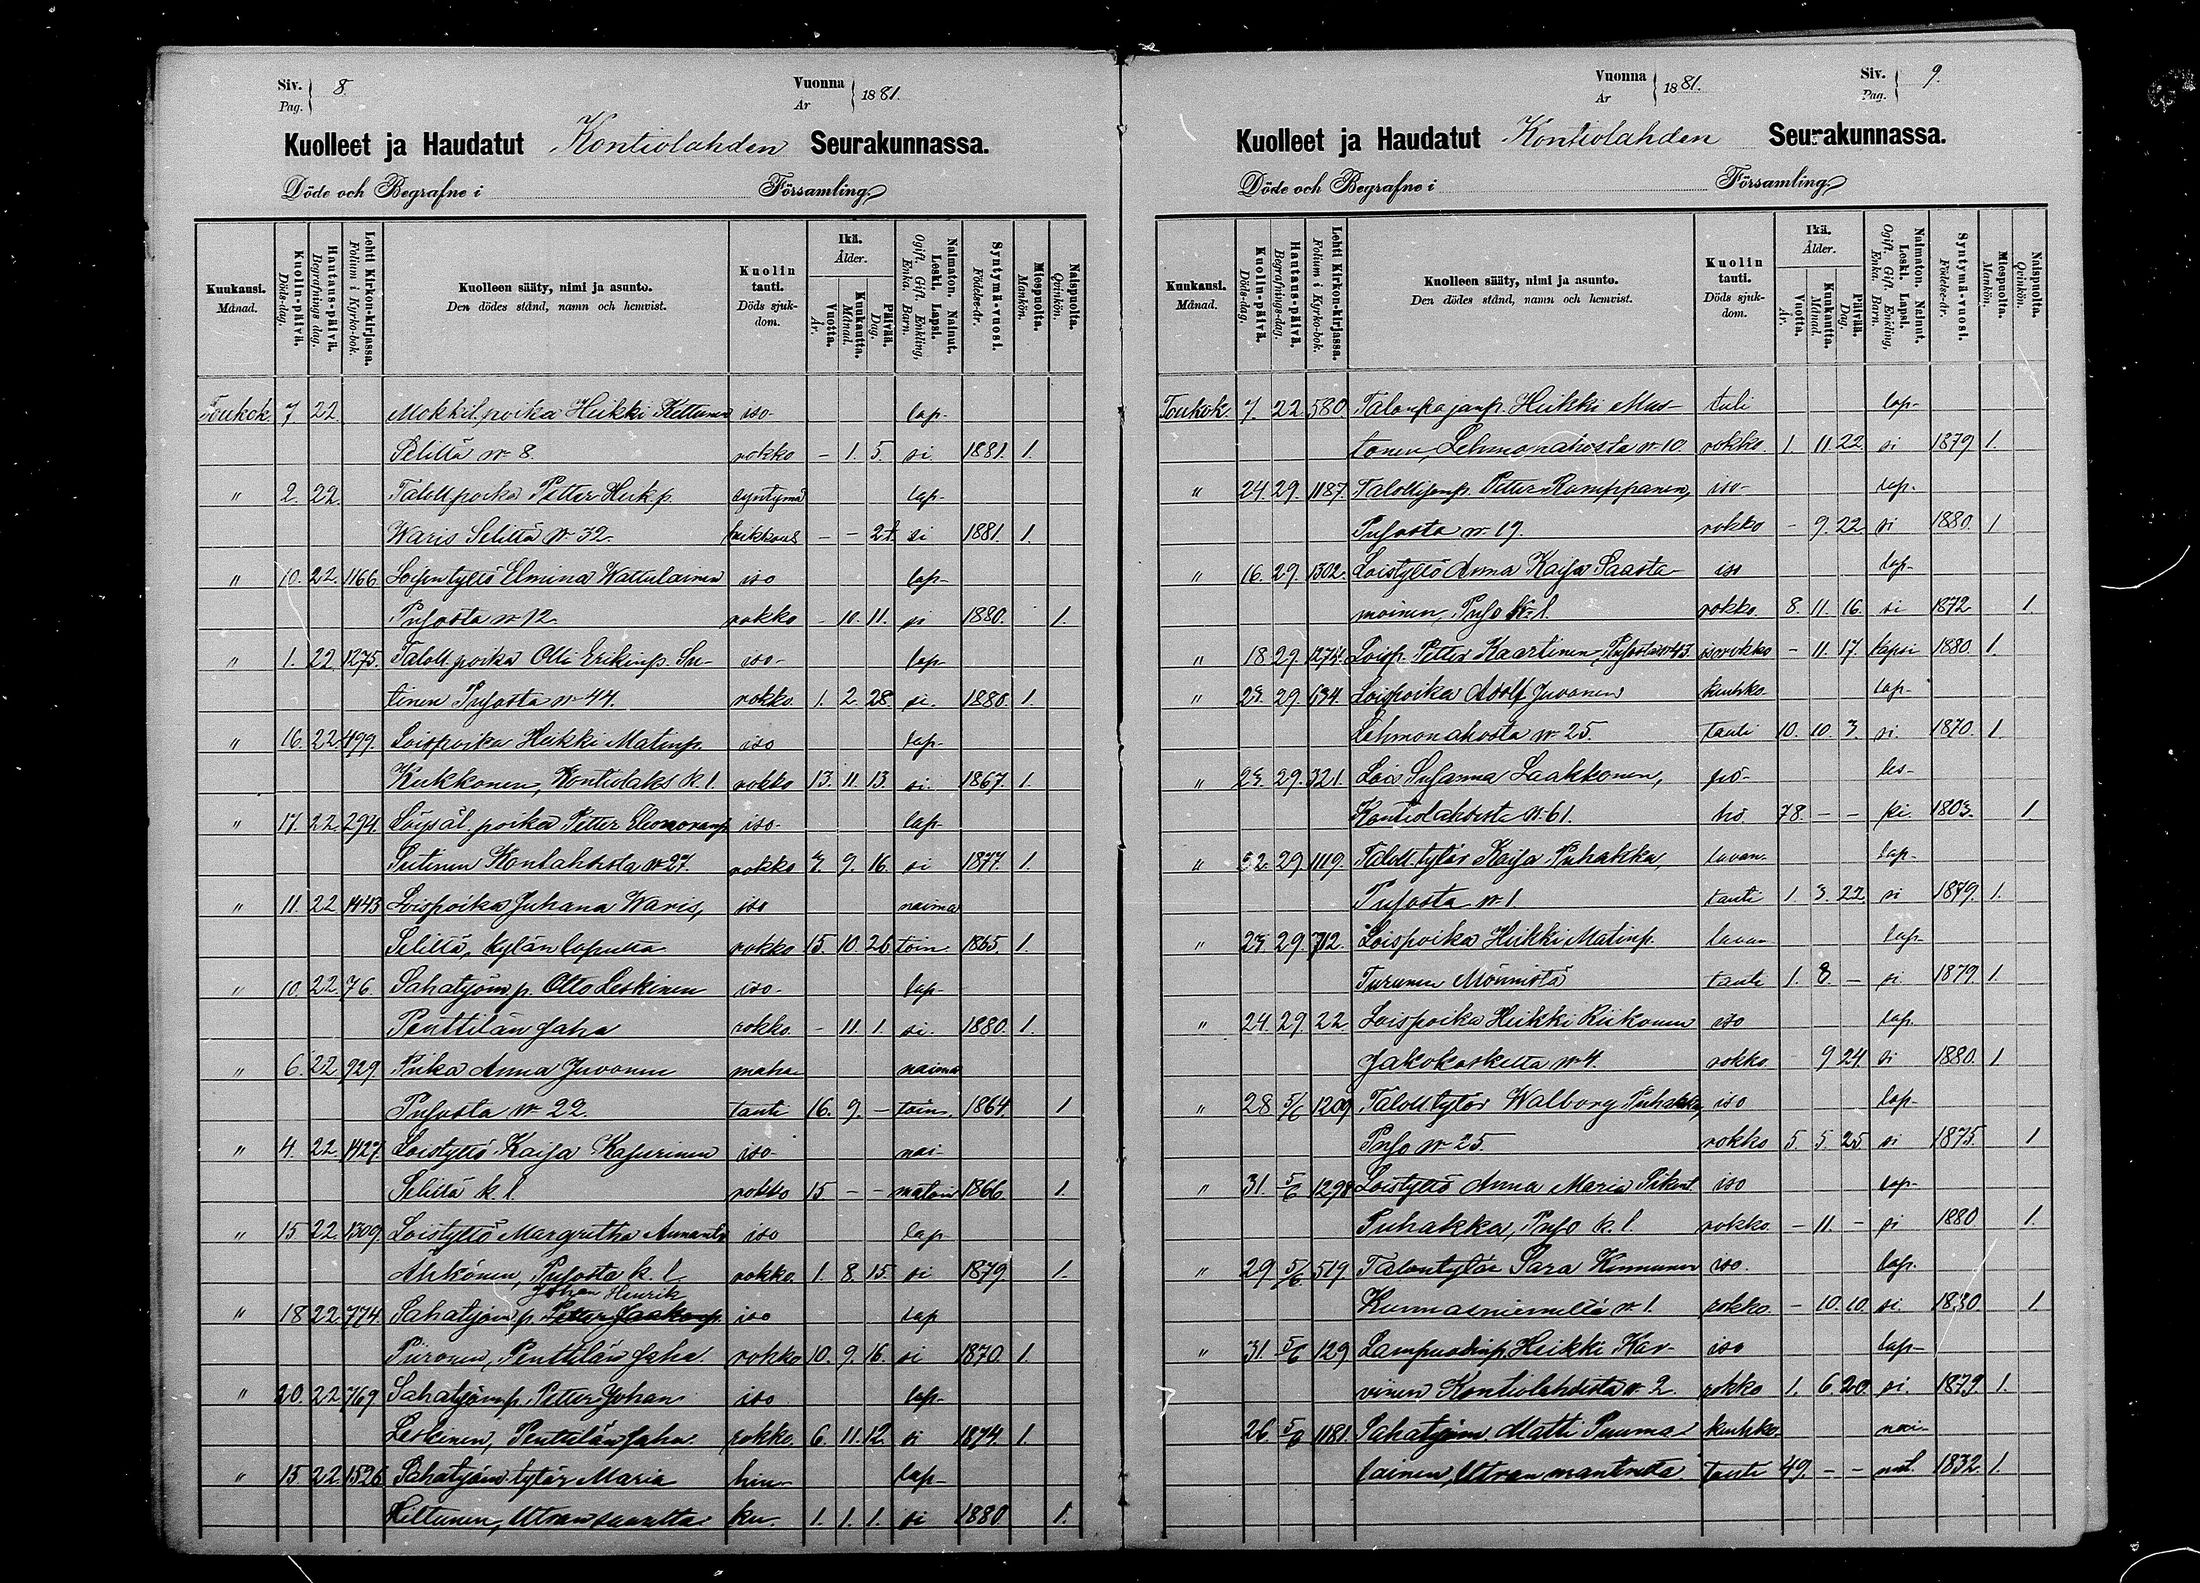 Siv. Pag. 8. Vuonna År 1881.
Kuolleet ja Haudatut Kontiolahden Seurakunnassa.
Döde och Begrafne i Församling.
Kuukausi. Månad. Kuolin-päivä. Döds-dag. Hautaus-päivä. Begrafnings dag. Lehti Kirkon-kirjassa. Folium i Kyrko-bok. Kuolleen sääty, nimi ja asunto. Den dödes stånd, namn och hemvist. Kuolin tauti. Döds sjukdom. Ikä. Ålder. Vuotta. År. Kuukautta. Månad. Päivää. Dag. Naimaton. Nainut. Leski. Lapsi. Ogift. Gift. Enkling, Enka. Barn. Syntymä-vuosi. Födelse-år. Miespuolta. Mankön. Naispuolta. Qvinkön.
Toukok. 7. 22. Mökkil. poika Heikki Kettunen iso- lap-
Seliltä № 8. rokko - 1. 5. si. 1881. 1.
" 2. 22. Taloll. poika Petter Heik.p. syntymä lap-
Waris Seliltä № 32. heikkous - - 21. si 1881. 1.
" 10. 22. 1166 Loisentyttö Elmina Wattulainen iso lap-
Pusosta № 12. rokko - 10. 11. si 1880. 1.
" 1. 22. 1275. Taloll. poika Olli Erikinp. Su- iso- lap-
tinen Pusosta № 44. rokko. 1. 2. 28 si. 1880. 1.
" 16. 22. 499. Loispoika Heikki Matinp. iso lap-
Kukkonen, Kontiolaks k. l. rokko 13. 11. 13. si. 1867. 1.
" 17. 22. 294. poika Petter iso- lap-
№ 27. rokko 3. 9. 16. si 1877. 1.
" 11. 22 1443 Loispoika Juhana Waris, iso naima
Seliltä, kylän lopulta rokko 15. 10. 26. toin. 1865. 1.
" 10. 22 76. Sahatyöm.p. Otto Leskinen iso- lap-
Penttilän saha rokko. - 11. 1. si. 1880. 1.
" 6. 22 929. Piika Anna Juvonen maha- naima
Pusosta № 22. tauti 16. 9. - toin. 1864 1
" 4. 22. 1427 Loistyttö Kaisa Kasurinen iso- nai-
Seliltä k. l. rokko 15 - - matoin 1866 1.
" 15 22. 1309. Loistyttö Margretha iso lap
Ahkonen, Pusosta k. l rokko. 1. 8. 15. si 1879 1.
Johan Henrik
" 18 22. 774. Sahatyöm. p. Petter Jaakonp. iso lap
Piironen, Penttilän saha. rokko 10. 9. 16. si 1870. 1.
" 20. 22 769 Sahatyömp. Petter Johan iso lap-
Leskinen, Penttilän saha. rokko. 6. 11. 12. si 1874. 1.
" 15 22. 1526 Sahatyöm. tytär Maria hin- lap-
Hiltunen, Utran saarelta ku. 1. 1. 1. si 1880 1.
Vuonna År 1881. Siv. Pag. 9.
Kuolleet ja Haudatut Kontiolahden Seurakunnassa.
Döde och Begrafne i Församling.
Kuukausi. Månad. Kuolin-päivä. Döds-dag. Hautaus-päivä. Begrafnings-dag. Lehti Kirkon-kirjassa. Folium i Kyrko-bok. Kuolleen sääty, nimi ja asunto. Den dödes stånd, namn och hemvist. Kuolin tauti. Döds sjukdom. Ikä. Ålder. Vuotta. År. Kuukautta. Månad. Päivää. Dag. Naimaton. Nainut. Leski. Lapsi. Ogift. Gift. Enkling, Enka. Barn. Syntymä-vuosi. Födelse-år. Miespuolta. Mankön. Naispuolta. Qvinkön.
Toukok. 7. 22. 580. Talonpojanp. Heikki Mus- tuli lap-
tonen, Lehmonahosta № 10. rokko. 1. 11. 22. si 1879 1.
" 24. 29. 1187. Talollisenp. Petter Romppanen, iso- lap-
Pusosta № 19. rokko - 9. 22 si 1880. 1
" 16. 29. 1302. Loistyttö Anna Kaisa Saasta- iso lap-
moinen, Puso k. l. rokko. 8. 11. 16. si 1872 1.
" 18 29. 1274. Loisp. Petter Kaartinen, Pusosta № 43. isorokko - 11. 17 lapsi 1880 1.
" 23. 29. 634. Loispoika Adolf Juvonen keuhko- lap-
Lehmonahosta № 25. tauti 10. 10. 3. si. 1870. 1.
" 23. 29. 321. Lois Susanna Laakkonen, pö- les-
Kontiolahdesta № 61. hö 78. - - ki. 1803. 1.
" 22. 29 1119. Taloll. tytär Kaisa Puhakka, lavan- lap-
Pusosta № 1. tauti 1. 3. 22. si 1879. 1.
" 23. 29. 712. Loispoika Heikki Matinp. lavan lap-
Turunen Mönnistä tauti 1. 8. - si. 1879 1.
" 24. 29. 22 Loispoika Heikki Riikonen iso lap.
Jakokoskelta № 4. rokko. 9 24. si 1880. 1.
" 28 5/6 1209 Taloll. tytär Walborg Puhakka, iso lap-
Puso № 25. rokko 5. 5. 25 si 1875. 1
" 31. 5/6 1298 Loistyttö Anna Maria iso lap-
Puhakka, Puso k. l. rokko. - 11. - si 1880 1.
" 29 5/6 519 Talontytär Sara Kinnunen iso. lap.
Kunnasniemeltä № 1. rokko. - 10. 10. si. 1880. 1
" 31. 5/6 129 Lampuodinp. Heikki Kar- iso lap-
vinen Kontiolahdesta № 2. rokko 1. 6. 20. si. 1879. 1.
26. 5/6 1181. Sahatyöm. Matti Puuma- keuhko- nai-
lainen, Utran mantreta. tauti 49. - - nut. 1832. 1.